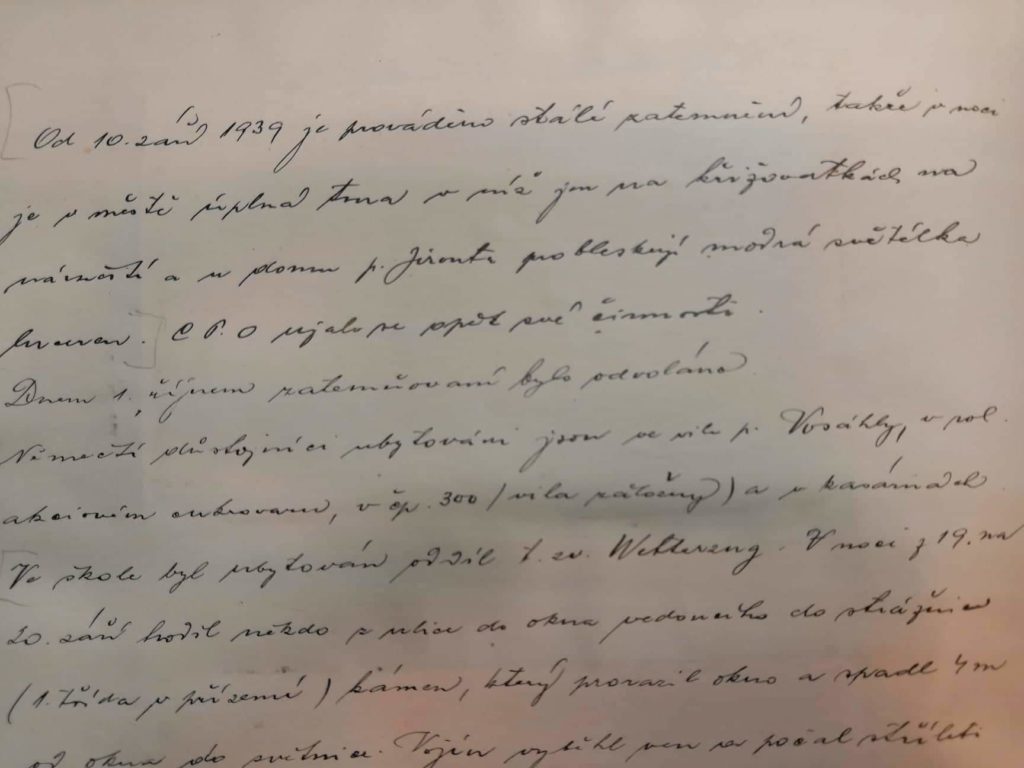 Od 10. září 1939 je prováděno stálé zatemnění, takže v noci
je v městě úplná tma v níž jen na křižovatkách, na
náměstí a u domu p. Jirouta probleskují modrá světélka
luceren. C P. O ujalo se opět své činnosti.
Dnem 1. říjnem zatemňovaní bylo odvoláno
Němečtí důstojníci ubytováni jsou ve vile p. Vosáhly, v rol.
akciovém cukrovaru, v čp. 300 / vila záložny) a v kasárnách
Ve škole byl ubytován oddíl t. zv. Wetterzug. V noci z 19. na
20. září hodil někdo z ulice do okna vedoucího do strážnice
(1. třída v přízemí) kámen, který prorazil okno a spadl 4 m
od okna do světnice. Vojín vyběhl ven a počal stříleti